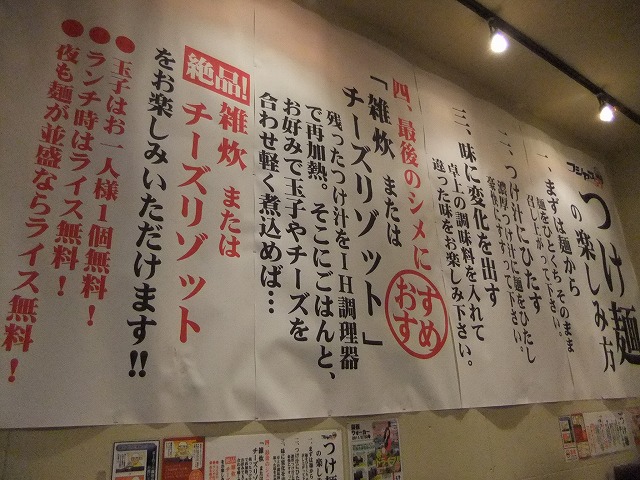 フジヤマ
つけ麺
の楽しみ方
一、まずは麺から
麺をひとくち、そのまま
召し上がって下さい。
二、つけ汁にひたす
濃厚つけ汁に麺をひたし
豪快にすすって下さい。
三、味に変化を出す
卓上の調味料を入れて
違った味をお楽しみ下さい。
四、最後のシメに
おすすめ
「雑炊 または
チーズリゾット」
残ったつけ汁をIH調理器
で再加熱。そこにごはんと、
お好みで玉子やチーズを
合わせ軽く煮込めば…
絶品!
雑炊 または
チーズリゾット
をお楽しみいただけます!!
●玉子はお一人様1個無料!
●ランチ時はライス無料!
●夜も麺が並盛ならライス無料!
つけ麺
の楽し